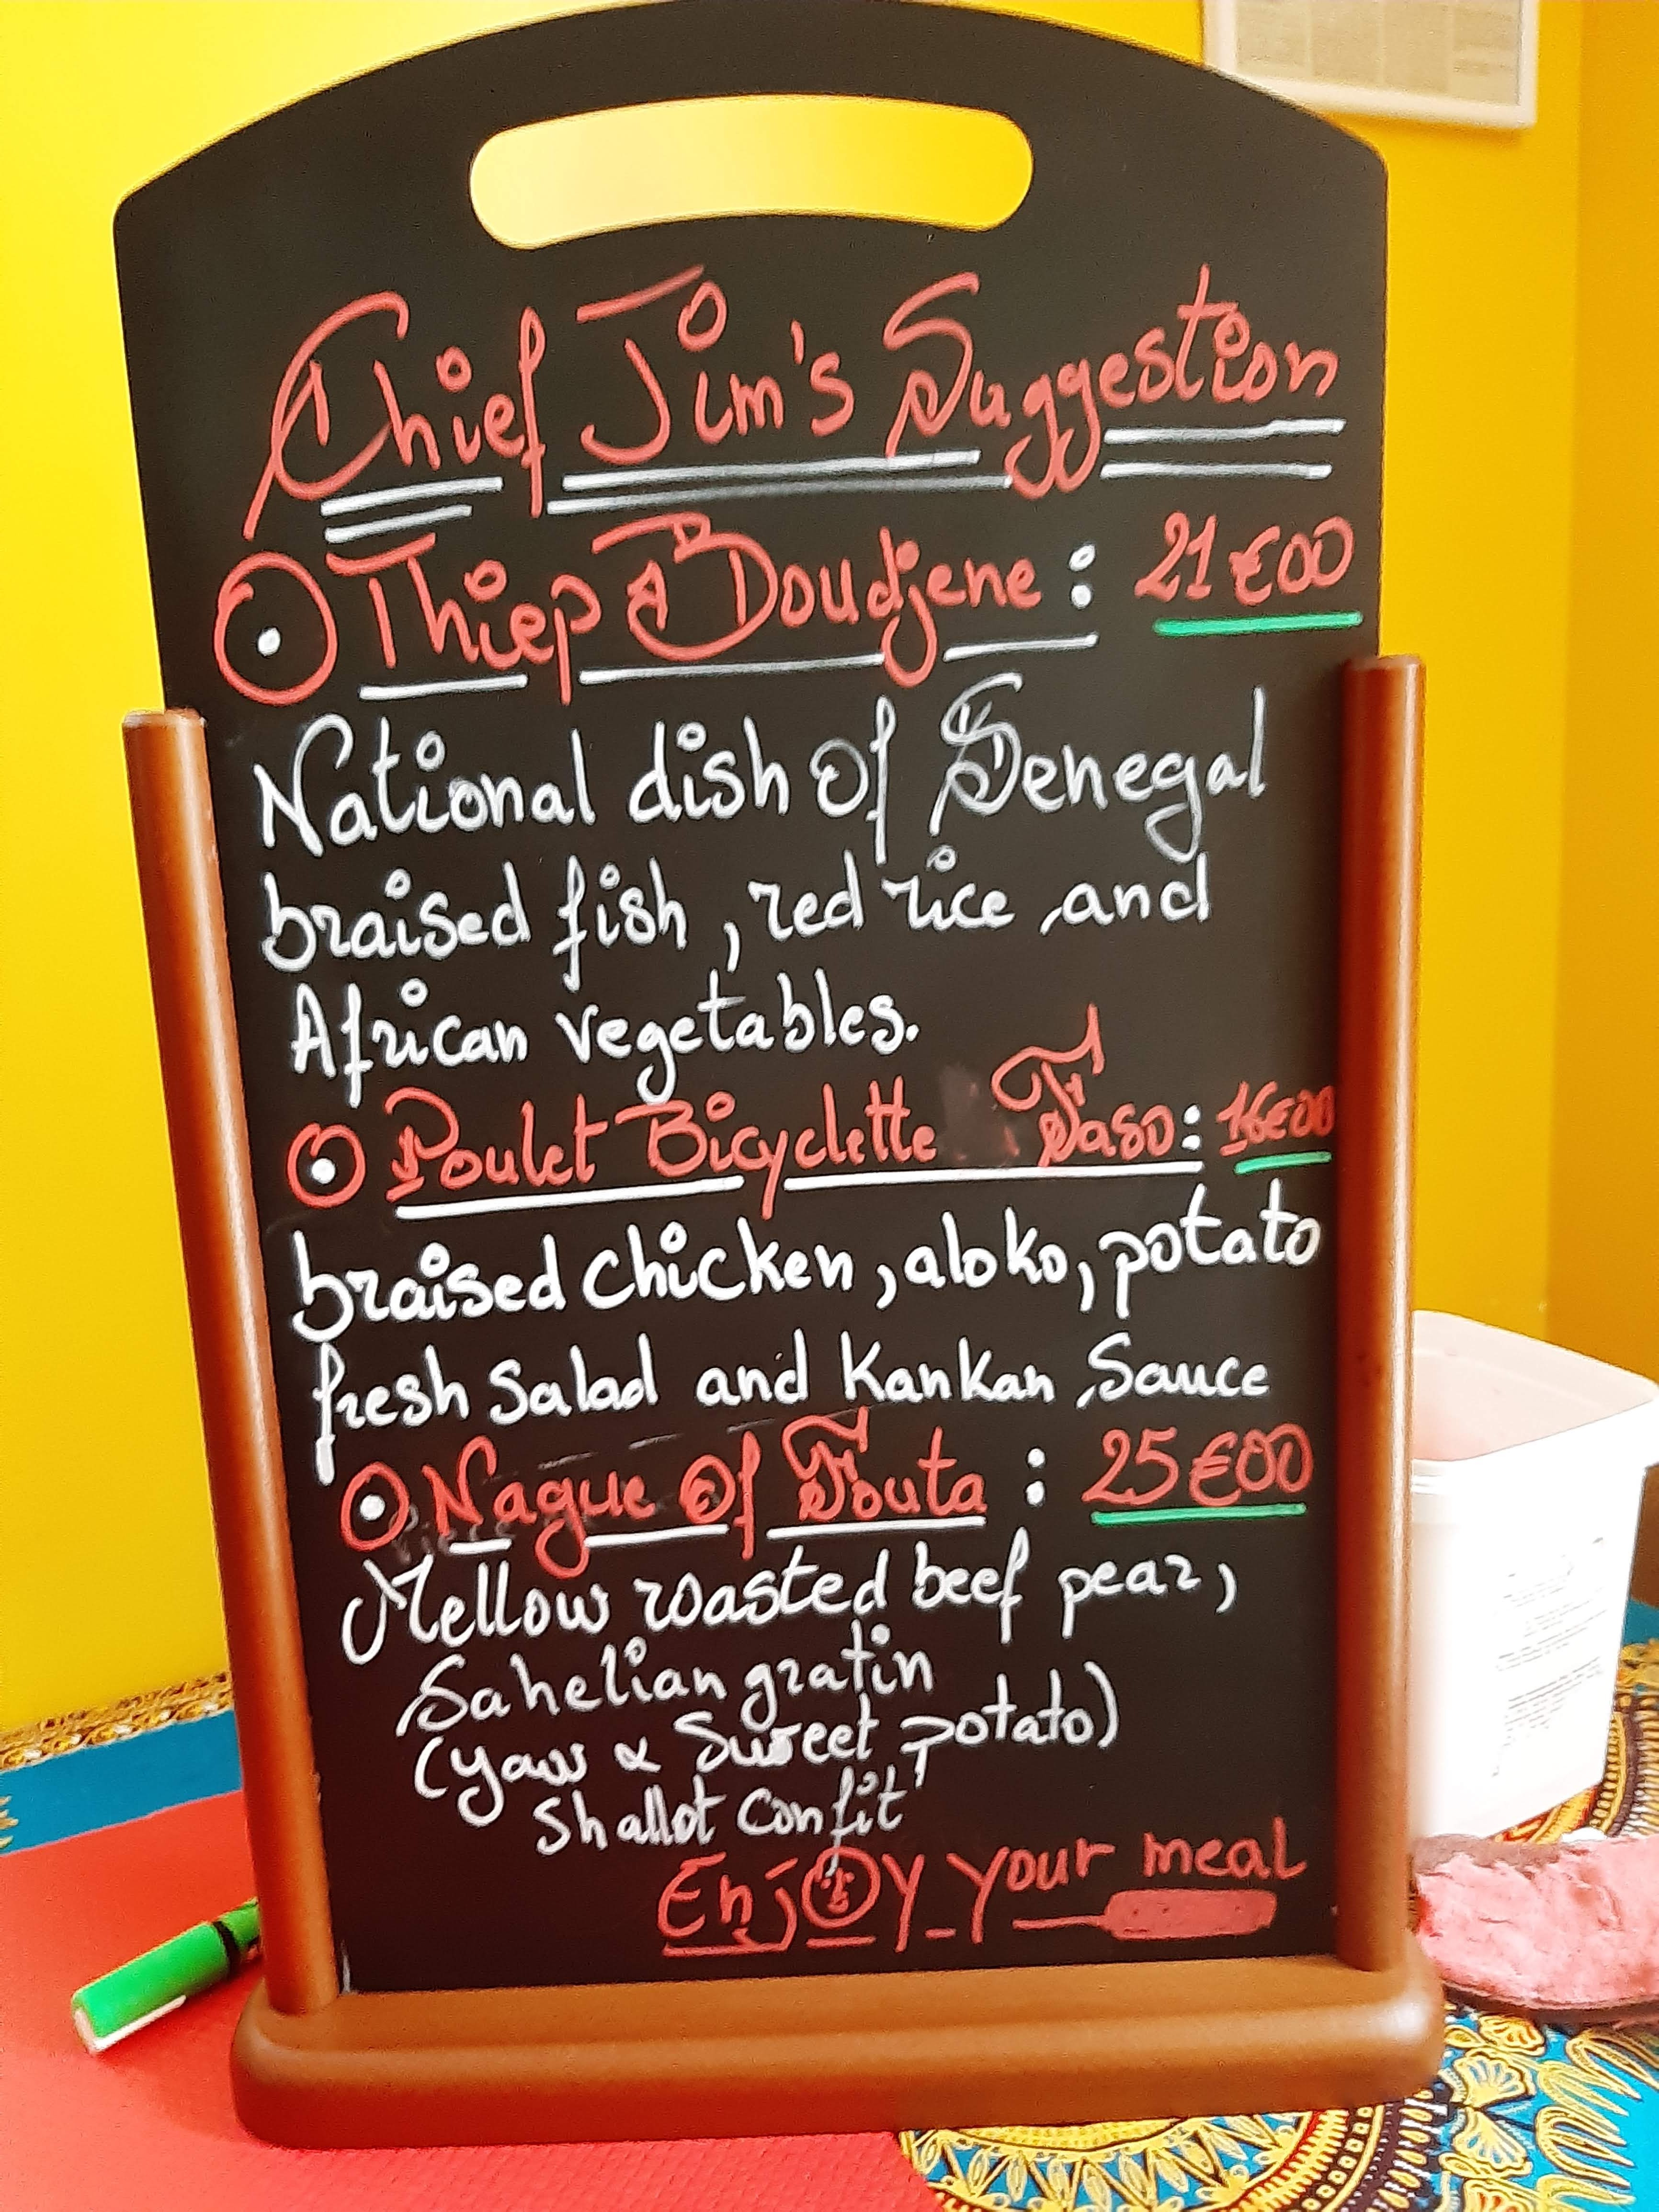 Chief Jim's Suggestion
Thiep A Boudjene : 21€00
National dish Of Senegal
braised fish, red rice and
African vegetables.
Poulet Bicyclette Faso : 16€00
braised chicken, aloko, potato
fresh Salad and KanKan Sauce
Nague Of Fouta : 25€00
Mellow roasted beef pear,
Sahelian gratin
(yaw & Sweet potato)
Shallot Confit
Enjoy your meal